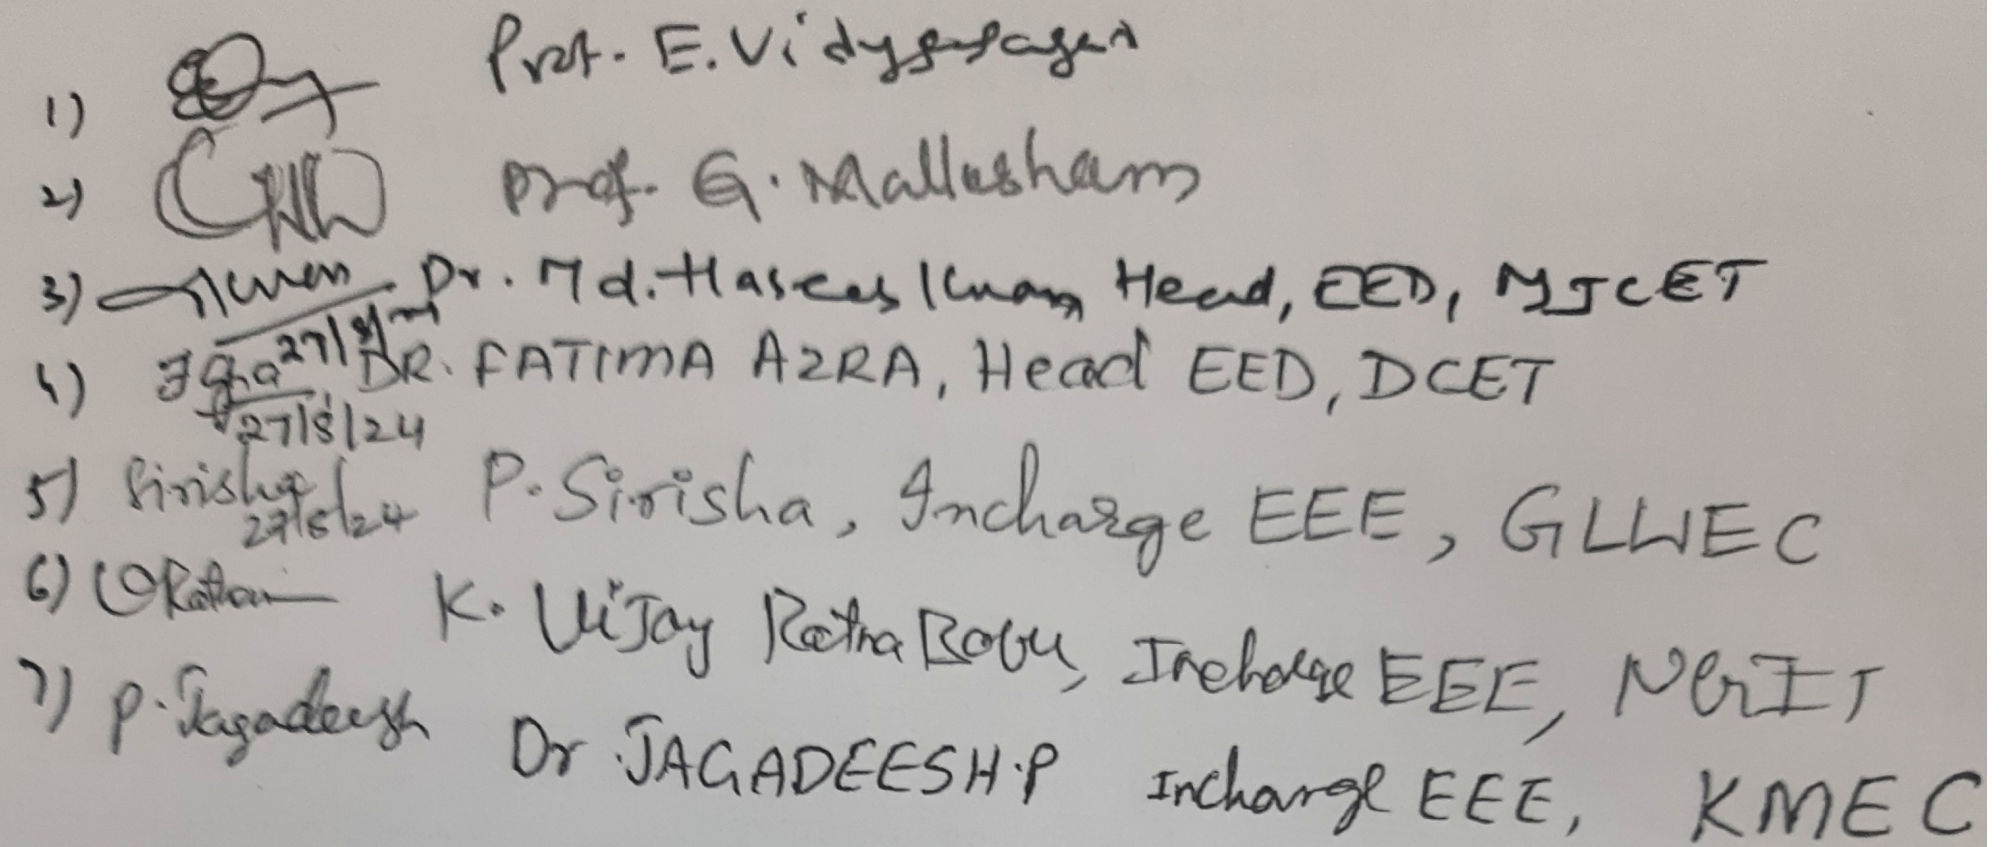 1) Prof. E. Vidyasagar
2) Prof. G. Mallesham
3) Dr. Md. Haseeb Khan Head, EED, MJCET
27/8/24
4) DR. FATIMA AZRA, Head EED, DCET
27/8/24
5) Sirisha P. Sirisha, Incharge EEE, GLWEC
27/8/24
6) K. Vijay Ratna Babu, Incharge EEE, NGIT
7) P. Jagadeesh Dr. JAGADEESH.P Incharge EEE, KMEC